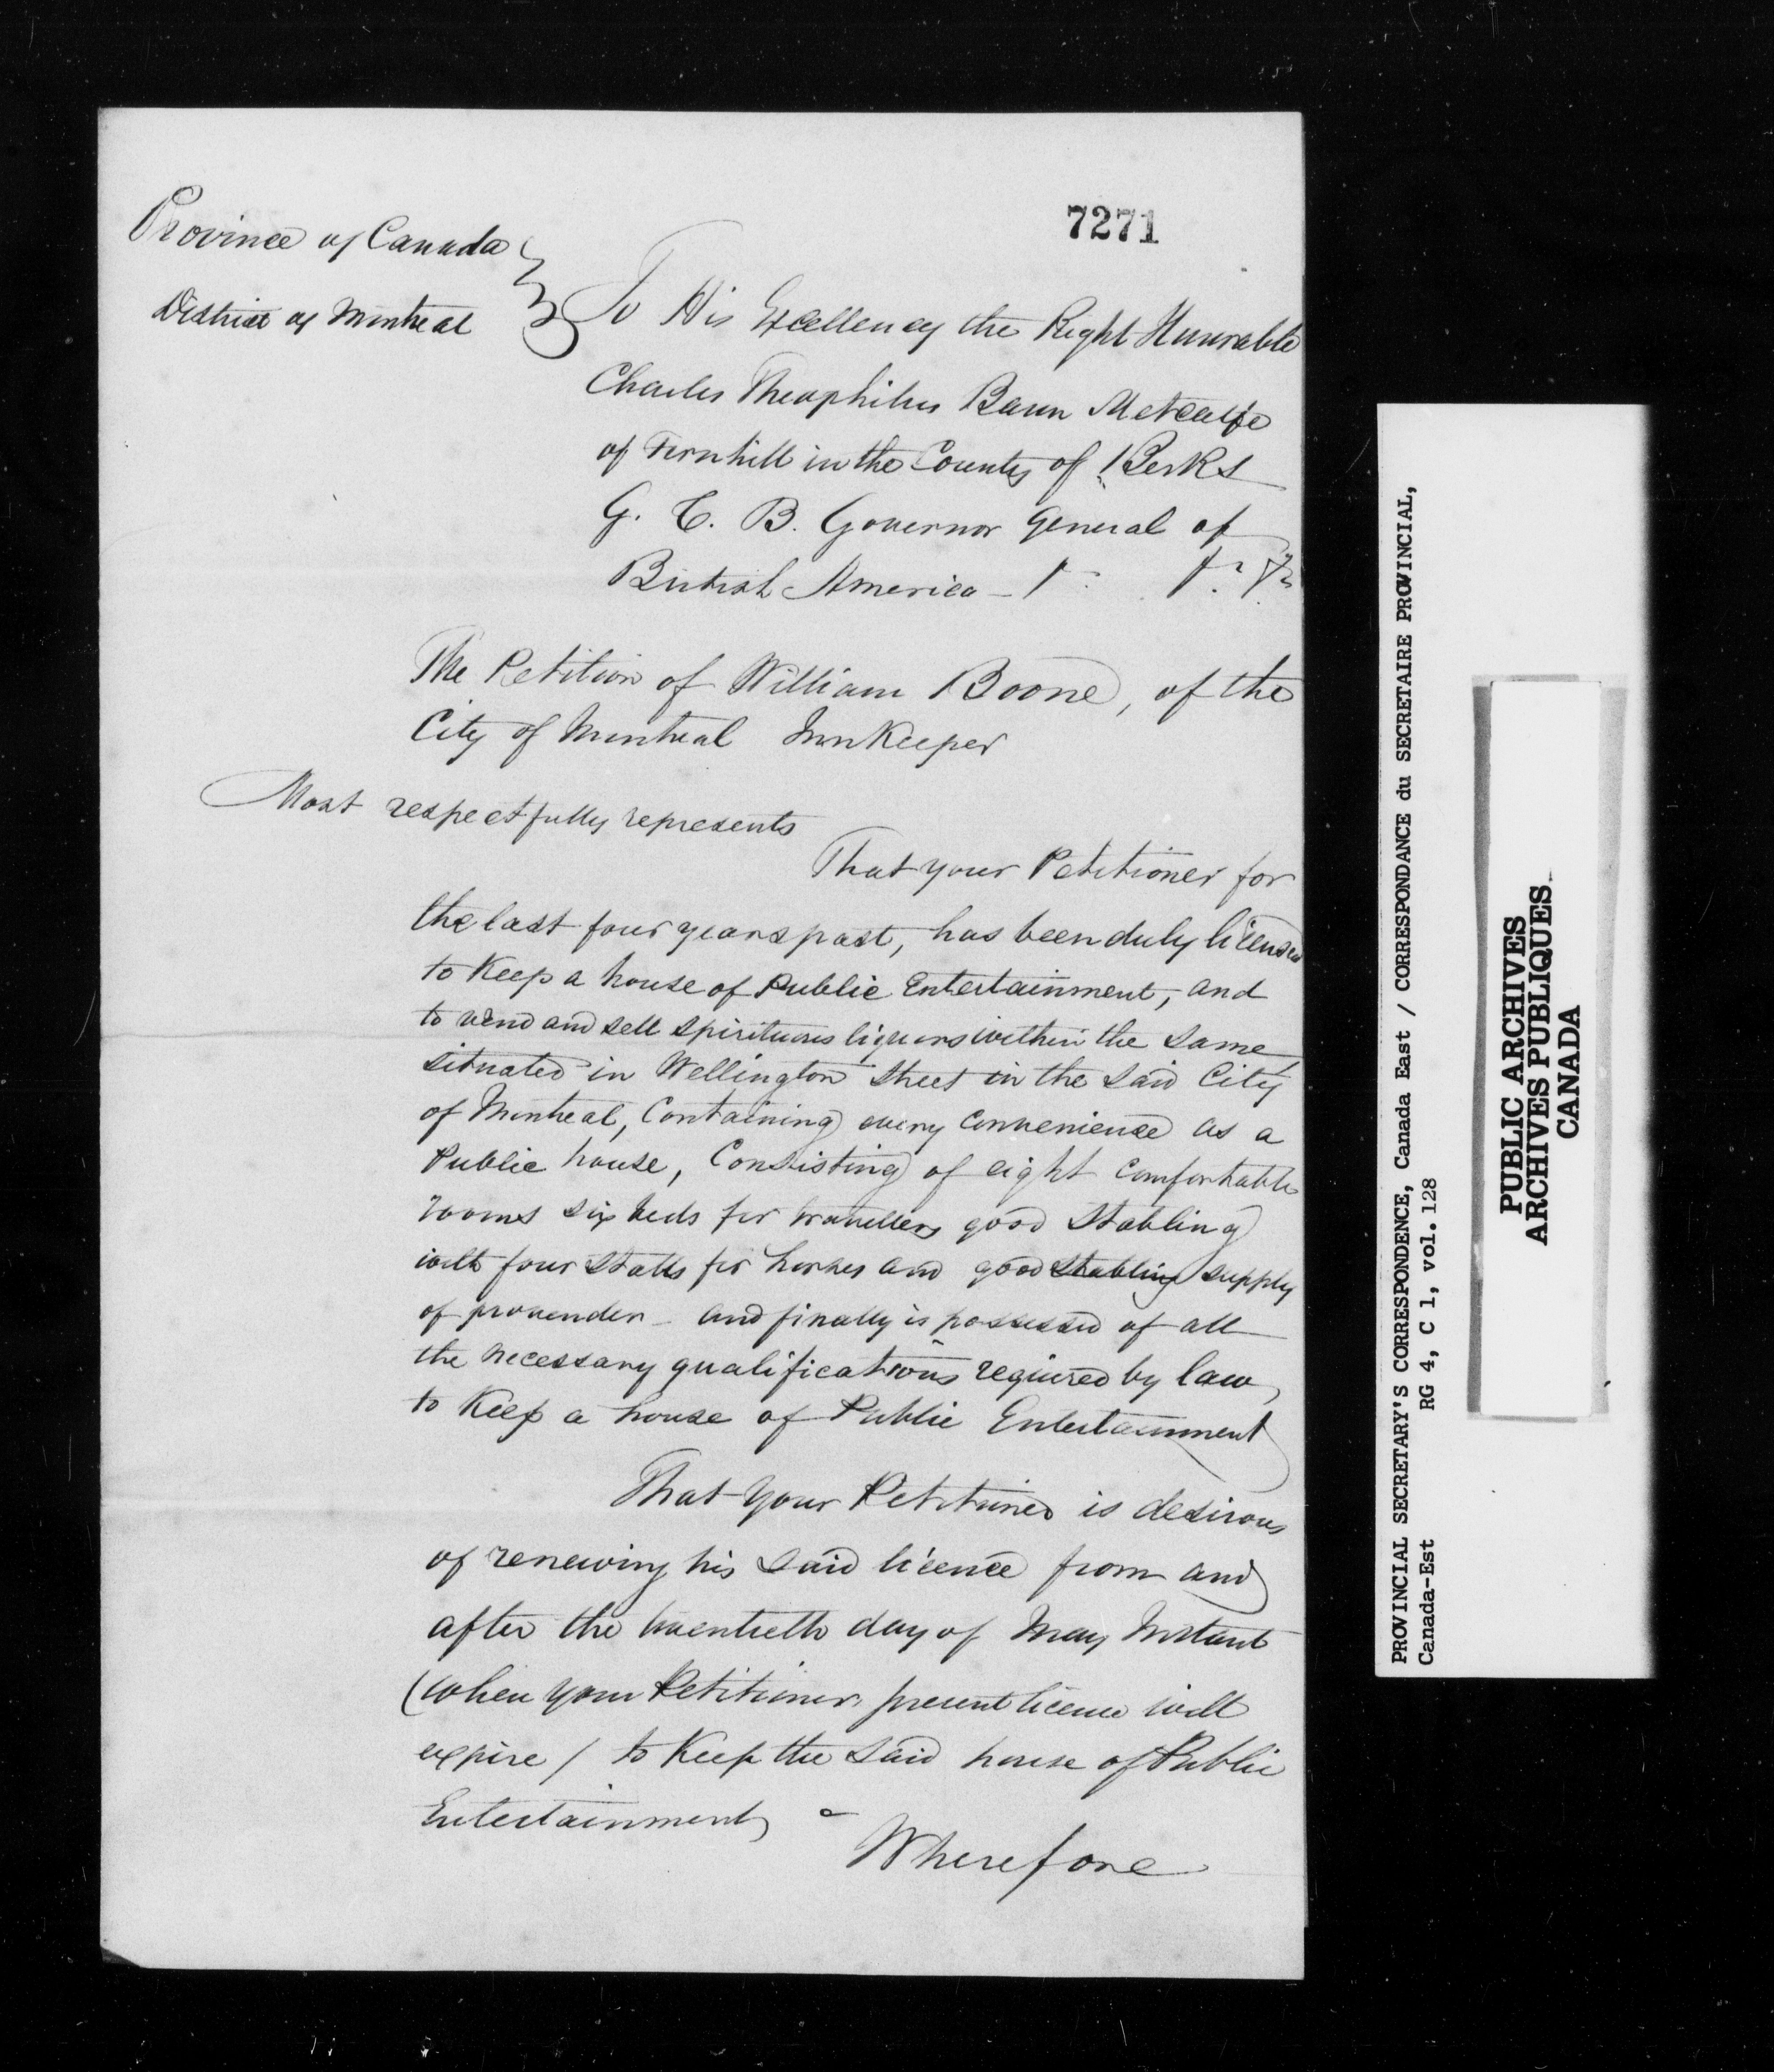 7271
Province of Canada
District of Montreal
To His Excellency the Right Honorable
Charles Theophilus Baron Metcalfe
of Fernhill in the County of Berks
G. C. B. Governor General of
British America
The Petition of William Boone, of the
City of Montreal InnKeeper
Most respectfully represents
That your Petitioner for
the last four years past, has been duly licensed
to Keep a house of Public Entertainment, and
to vend and sell spirituous liquors within the same
situated in Wellington Street in the said City
of Montreal, Containing every convenience as a
Public house, Consisting of eight comfortable
rooms six beds for travellers good Stabling
with four Stalls for horses and good stabling supply
of provender - and finally is possessed of all
the necessary qualifications required by law,
to Keep a house of Public Entertainment
That your Petitioner is desirous
of renewing his said licence from and
after the twentieth day of May Instant
(when your Petitioners present licence will
expire / to Keep the said house of Public
Entertainment
Wherefore
PROVINCIAL SECRETARY'S CORRESPONDENCE, Canada East / CORRESPONDANCE du SECRETAIRE PROVINCIAL,
Canada-Est RG 4, C 1, vol. 128
PUBLIC ARCHIVES
ARCHIVES PUBLIQUES
CANADA